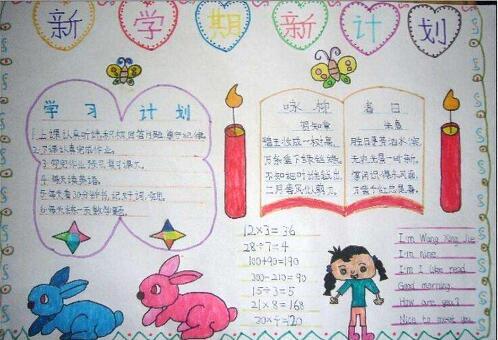 新学期新计划
学习计划
1.上课认真听讲,积极回答问题,遵守纪律。
2.下课认真完成作业。
3.写完作业预习复习课文。
4.每天读英语。
5.每天看30分钟书,记好词,好句。
6.每天练一天数学题。
咏柳
贺知章
碧玉妆成一树高,
万条垂下绿丝绦。
不知细叶谁裁出,
二月春风似剪刀。
春日
朱熹
胜日寻芳泗水滨,
无边光景一时新。
等闲识得东风面,
万紫千红总是春。
12×3=36
28÷7=4
100+90=190
300-210=90
15÷3=5
21×8=168
I'm Wang Xing Jie
I'm nine
I'm I like read
Good morning
How are you?
Nice to meet you